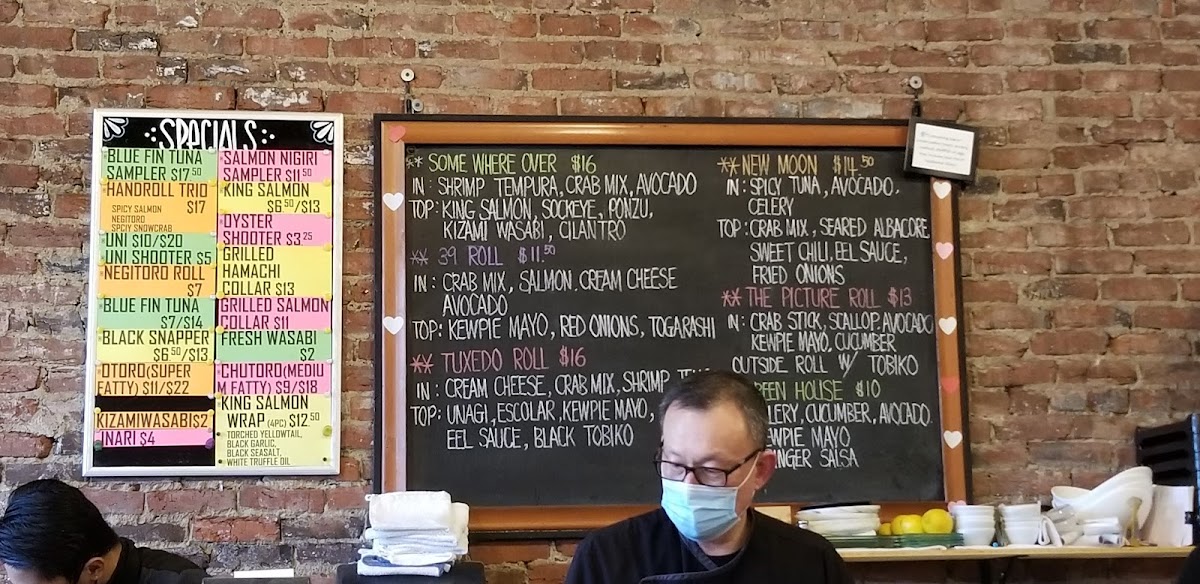 SPECIALS
BLUE FIN TUNA
SAMPLER $17.50
HANDROLL TRIO
$17
SPICY SALMON
NEGITORO
SPCIY SNOWCRAB
UNI $10/$20
UNI SHOOTER $5
NEGITORO ROLL
$7
BLUE FIN TUNA
$7/$14
BLACK SNAPPER
$6.50/$13
OTORO(SUPER
FATTY) $11/$22
KIZAMIWASABI$2
INARI $4
SALMON NIGIRI
SAMPLER $11.50
KING SALMON
$6.50/$13
OYSTER
SHOOTER $3.25
GRILLED
HAMACHI
COLLAR $13
GRILLED SALMON
COLLAR $11
FRESH WASABI
$2
CHUTORO(MEDIU
M FATTY) $9/$18
KING SALMON
WRAP (4PC) $12.50
TORCHED YELLOWTAIL,
BLACK GARLIC,
BLACK SEASALT,
WHITE TRUFFLE OIL
** SOME WHERE OVER $16
IN: SHRIMP TEMPURA, CRAB MIX, AVOCADO
TOP: KING SALMON, SOCKEYE, PONZU,
KIZAMI WASABI, CILANTRO
** 39 ROLL $11.50
IN: CRAB MIX, SALMON, CREAM CHEESE
AVOCADO
TOP: KEWPIE MAYO, RED ONIONS, TOGARASHI
** TUXEDO ROLL $16
IN: CREAM CHEESE, CRAB MIX, SHRIMP
TOP: UNAGI, ESCOLAR, KEWPIE MAYO,
EEL SAUCE, BLACK TOBIKO
** NEW MOON $14.50
IN: SPICY TUNA, AVOCADO,
CELERY
TOP: CRAB MIX, SEARED ALBACORE
SWEET CHILI, EEL SAUCE,
FRIED ONIONS
** THE PICTURE ROLL $13
IN: CRAB STICK, SCALLOP, AVOCADO
KEWPIE MAYO, CUCUMBER
OUTSIDE ROLL W/ TOBIKO
REEN HOUSE $10
LERY, CUCUMBER, AVOCADO
EWPIE MAYO
INGER SALSA